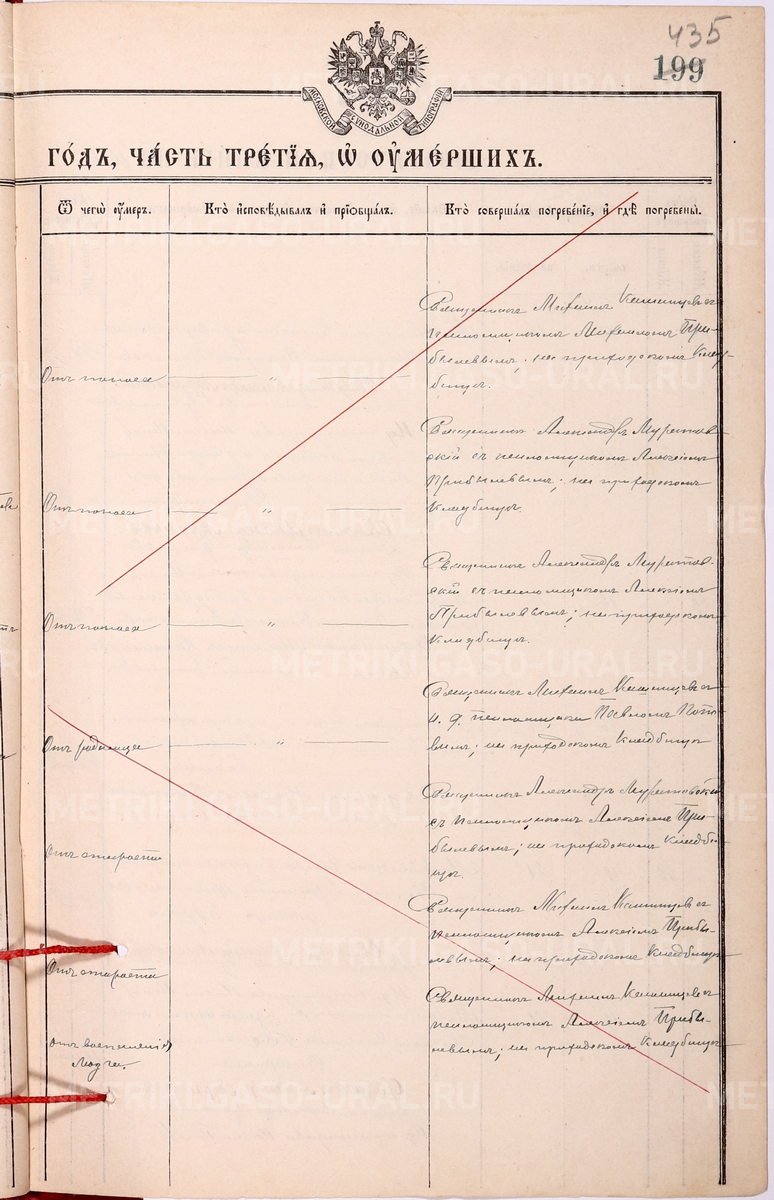 435
199
МОСКОВСКОЙ СѴНОДАЛЬНОЙ ТИПОГРАФІИ
го́дъ, ча́сть тре́тїѧ, ѡ҆ оу҆ме́ршихъ.
Ѿ чегѡ̀ оу҆́меръ.
Кто̀ и҆сповѣ́дывалъ и҆ прїѡбща́лъ.
Кто̀ соверша́лъ погребе́нїе, и҆ гдѣ̀ погребены̀.
Отъ поноса
"
Священникъ Михаилъ съ
псаломщикомъ При-
былевымъ; на приходскомъ клад-
бищѣ.
Отъ поноса
"
Священникъ Александръ
скій съ псаломщикомъ Алексіемъ
Прибылевымъ; на приходскомъ
кладбищѣ.
Отъ поноса
"
Священникъ Александръ
скій съ псаломщикомъ Алексіемъ
Прибылевымъ; на приходскомъ
кладбищѣ.
Отъ родимца
"
Священникъ Михаилъ съ
и. д. псаломщика Павломъ Попо-
вымъ; на приходскомъ кладбищѣ
Отъ старости
Священникъ Александръ
съ псаломщикомъ Алексіемъ При-
былевымъ; на приходскомъ кладби-
щѣ.
Отъ старости
Священникъ Михаилъ съ
псаломщикомъ Алексіемъ Прибы-
левымъ; на приходскомъ кладбищѣ
отъ воспаленія
мозга.
Священникъ Михаилъ съ
псаломщикомъ Алексіемъ Прибы-
левымъ; на приходскомъ кладбищѣ
METRIKI.GASO-URAL.RU